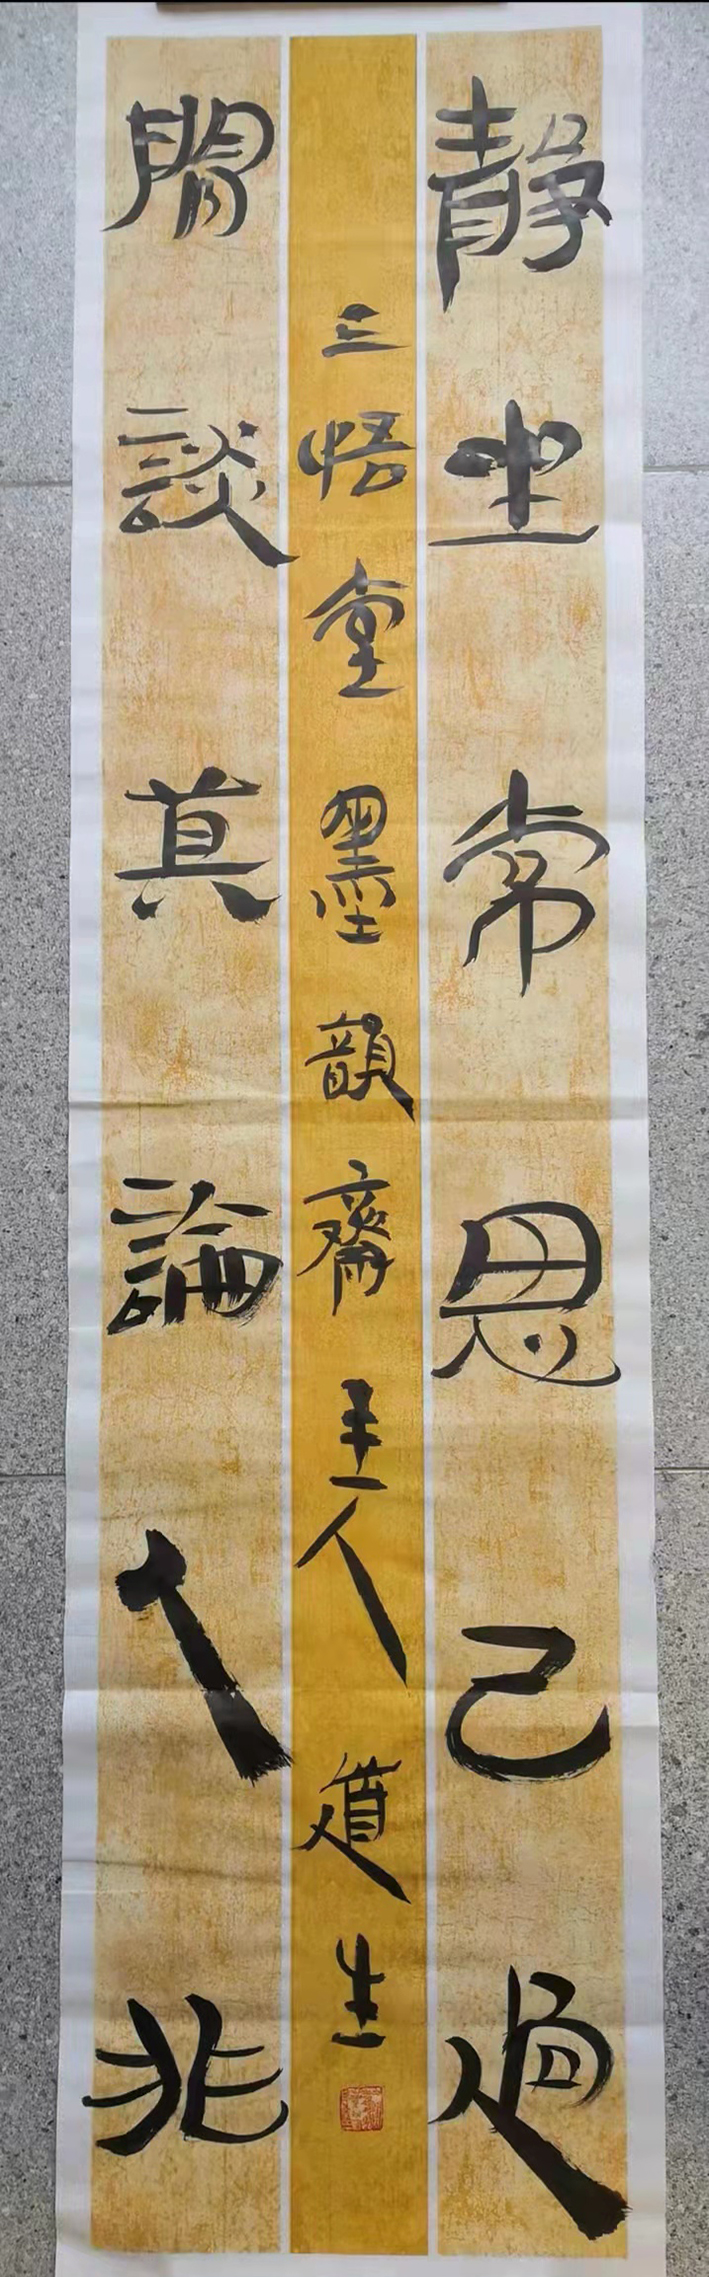 靜坐常思己過
三悟堂墨韻齋主人道生
閒談莫論人非